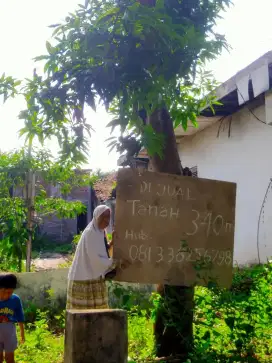 DI JUAL
Tanah 340 m
Hub.
081330256798